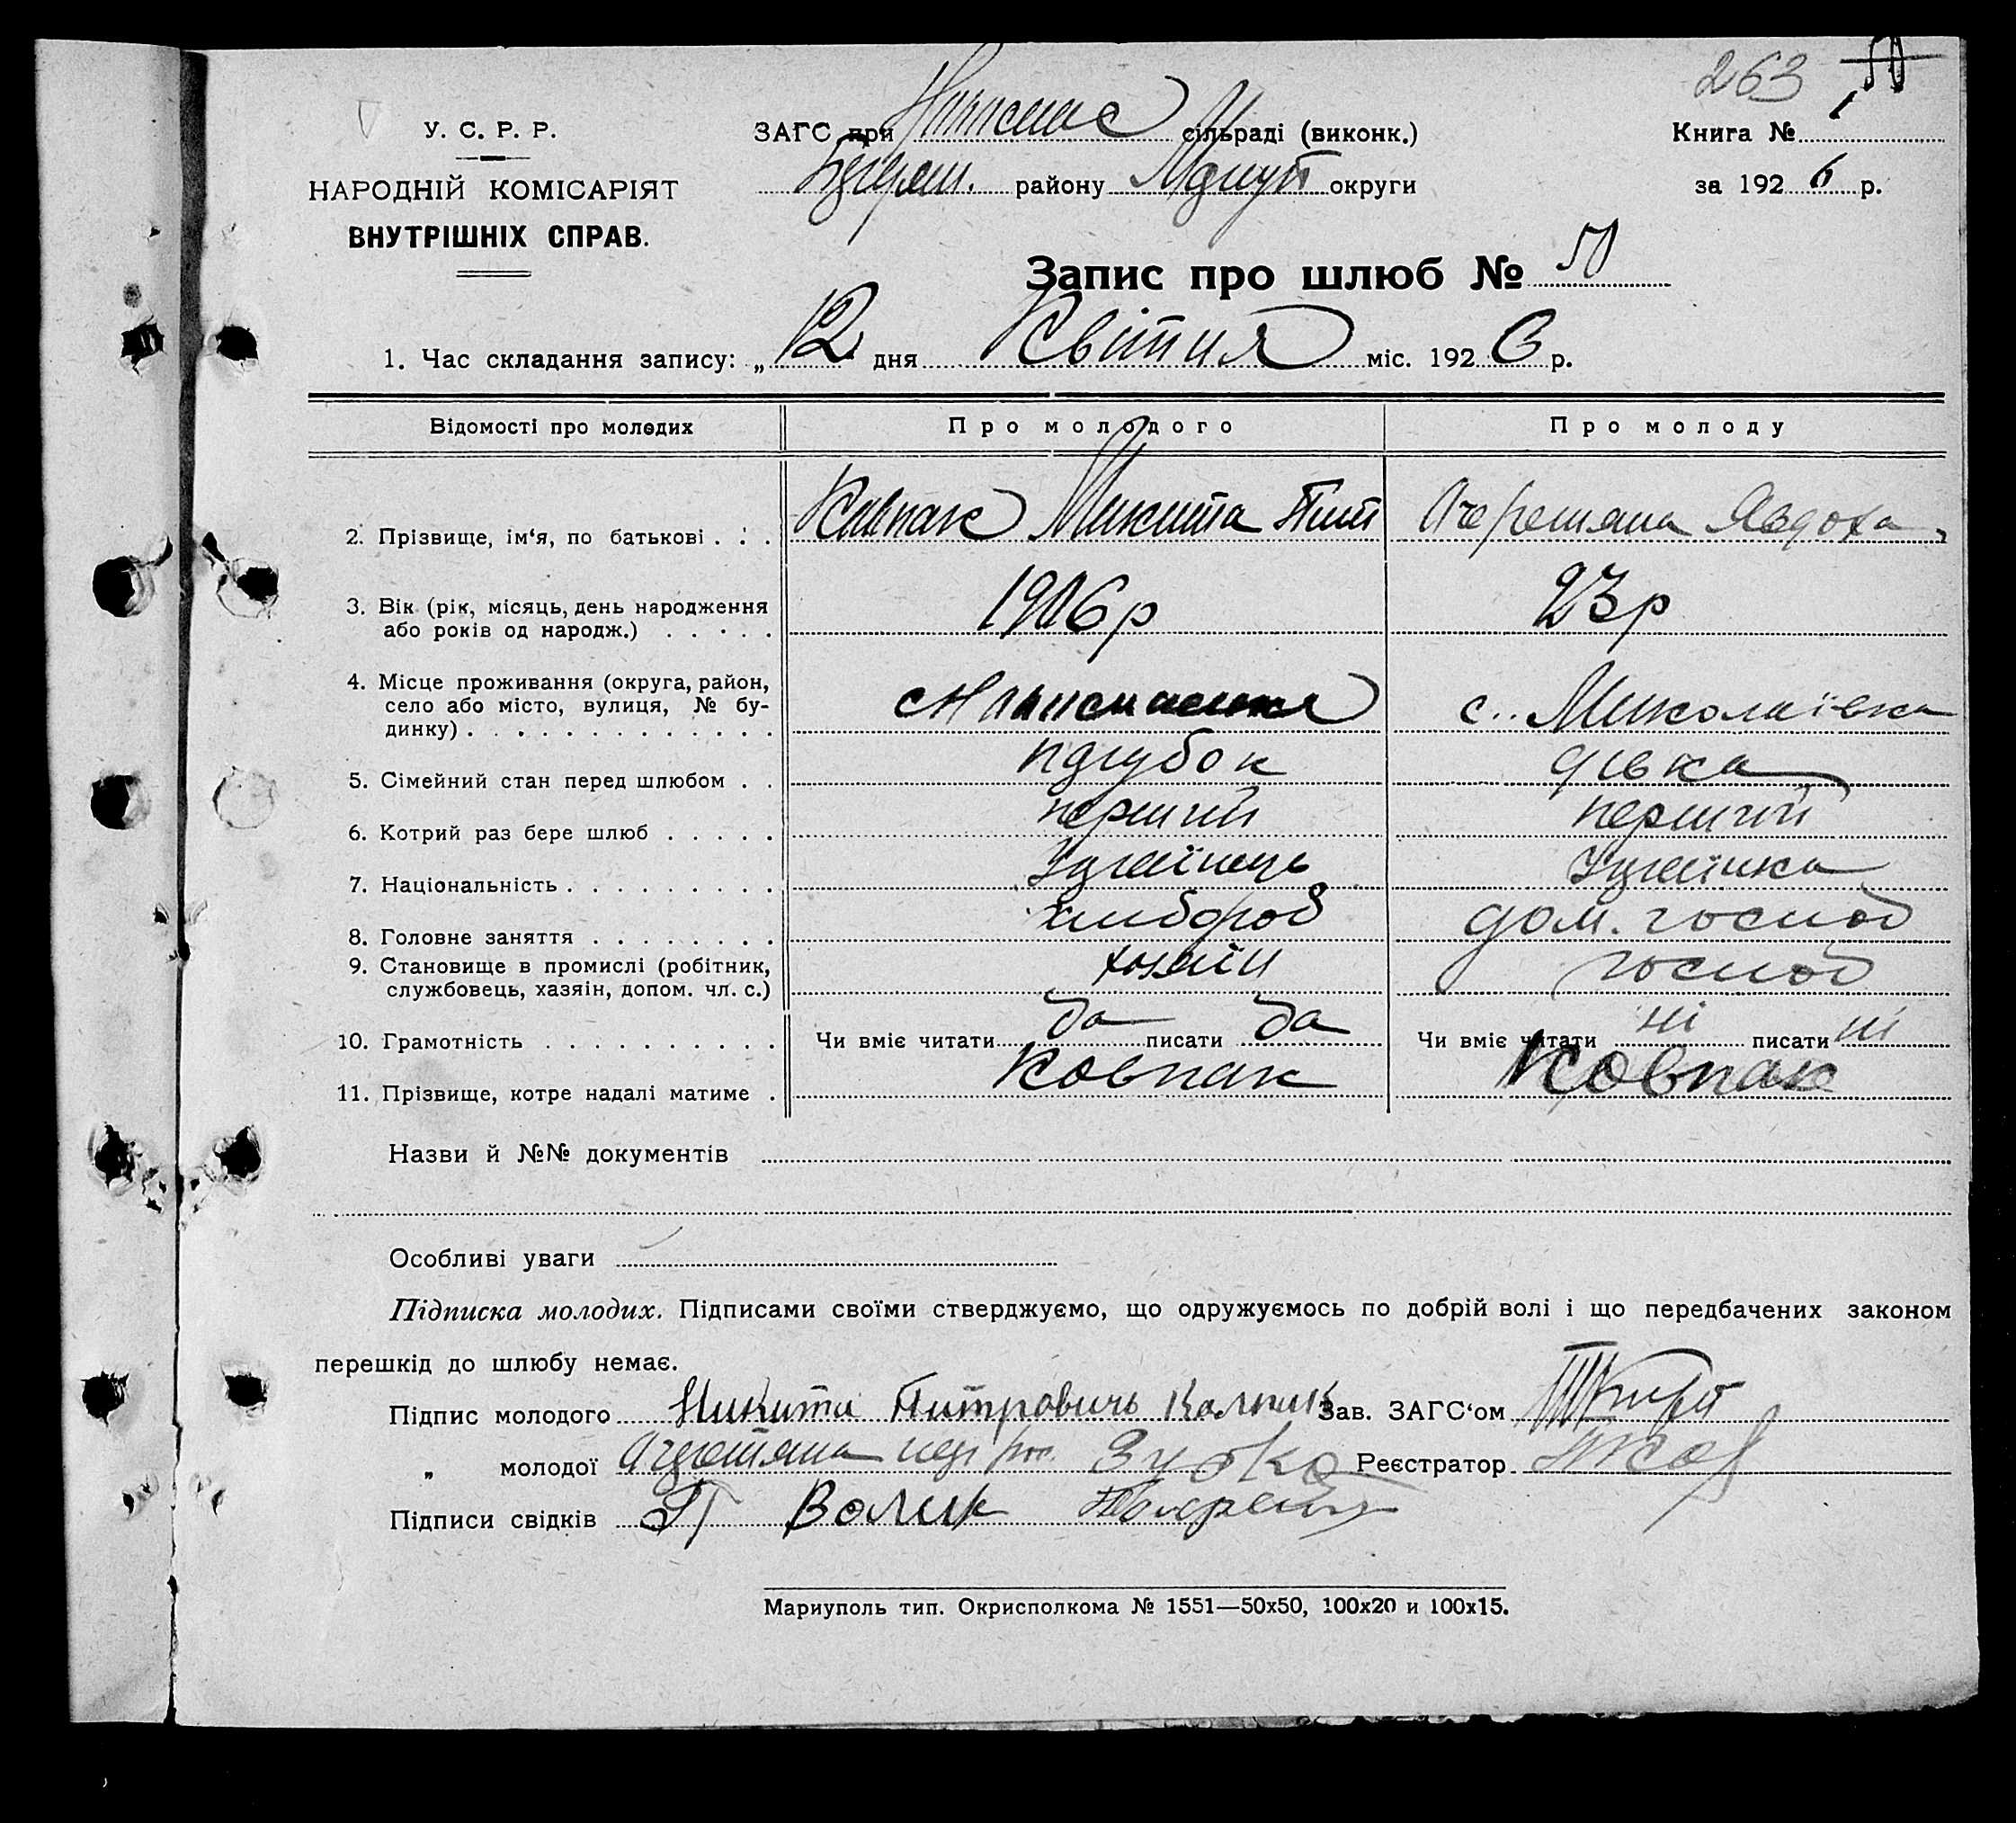 263 50
У. С. Р. Р.
ЗАГС при сільраді (виконк.)
Книга № 1
НАРОДНІЙ КОМІСАРІЯТ
району округи
за 1926 р.
ВНУТРІШНІХ СПРАВ.
Запис про шлюб № 50
1. Час складання запису: „12 дня Квітня міс. 1926 р.
Відомості про молодих
Про молодого
Про молоду
2. Прізвище, ім‘я, по батькові . . .
Ковпак Микита Пит
Явдоха
3. Вік (рік, місяць, день народження
або років од народж.) . . . . .
1906 р
23 р
4. Місце проживання (округа, район,
село або місто, вулиця, № бу-
динку) . . . . . . . . . . . . .
с. Миколаївка
5. Сімейний стан перед шлюбом . .
парубок
дівка
6. Котрий раз бере шлюб . . . . .
перший
перший
7. Національність . . . . . . . . .
Українець
Українка
8. Головне заняття . . . . . . . .
хлибороб
дом. господ
9. Становище в промислі (робітник,
службовець, хазяін, допом. чл. с.)
хозяїн
господ
10. Грамотність . . . . . . . . . .
Чи вміє читати да писати да
Чи вміє читати ні писати ні
11. Прізвище, котре надалі матиме .
Ковпак
Ковпак
Назви й №№ документів
Особливі уваги
Підписка молодих. Підписами своїми стверджуємо, що одружуємось по добрій волі і що передбачених законом
перешкід до шлюбу немає.
Підпис молодого Никита Питровичь Калпак Зав. ЗАГС‘ом
„ молодої Зубко Реєстратор
Підписи свідків П Волик
Мариуполь тип. Окрисполкома № 1551—50х50, 100х20 и 100х15.